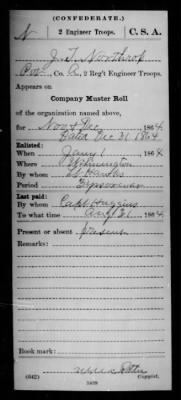 (CONFEDERATE.)
N 2 Engineer Troops. C. S. A.
J. T. Northrop
Pvt, Co. A, 2 Reg't Engineer Troops.
Appears on
Company Muster Roll
of the organization named above,
for Nov & Dec, 1864.
dated Dec 31 1864
Enlisted:
When Jany 1, 1864
Where Wilmington
By whom
Period
Last paid:
By whom Capt Huggins
To what time Aug 31, 1864
Present or absent Present
Remarks:
Book mark:
(642) Copyist.